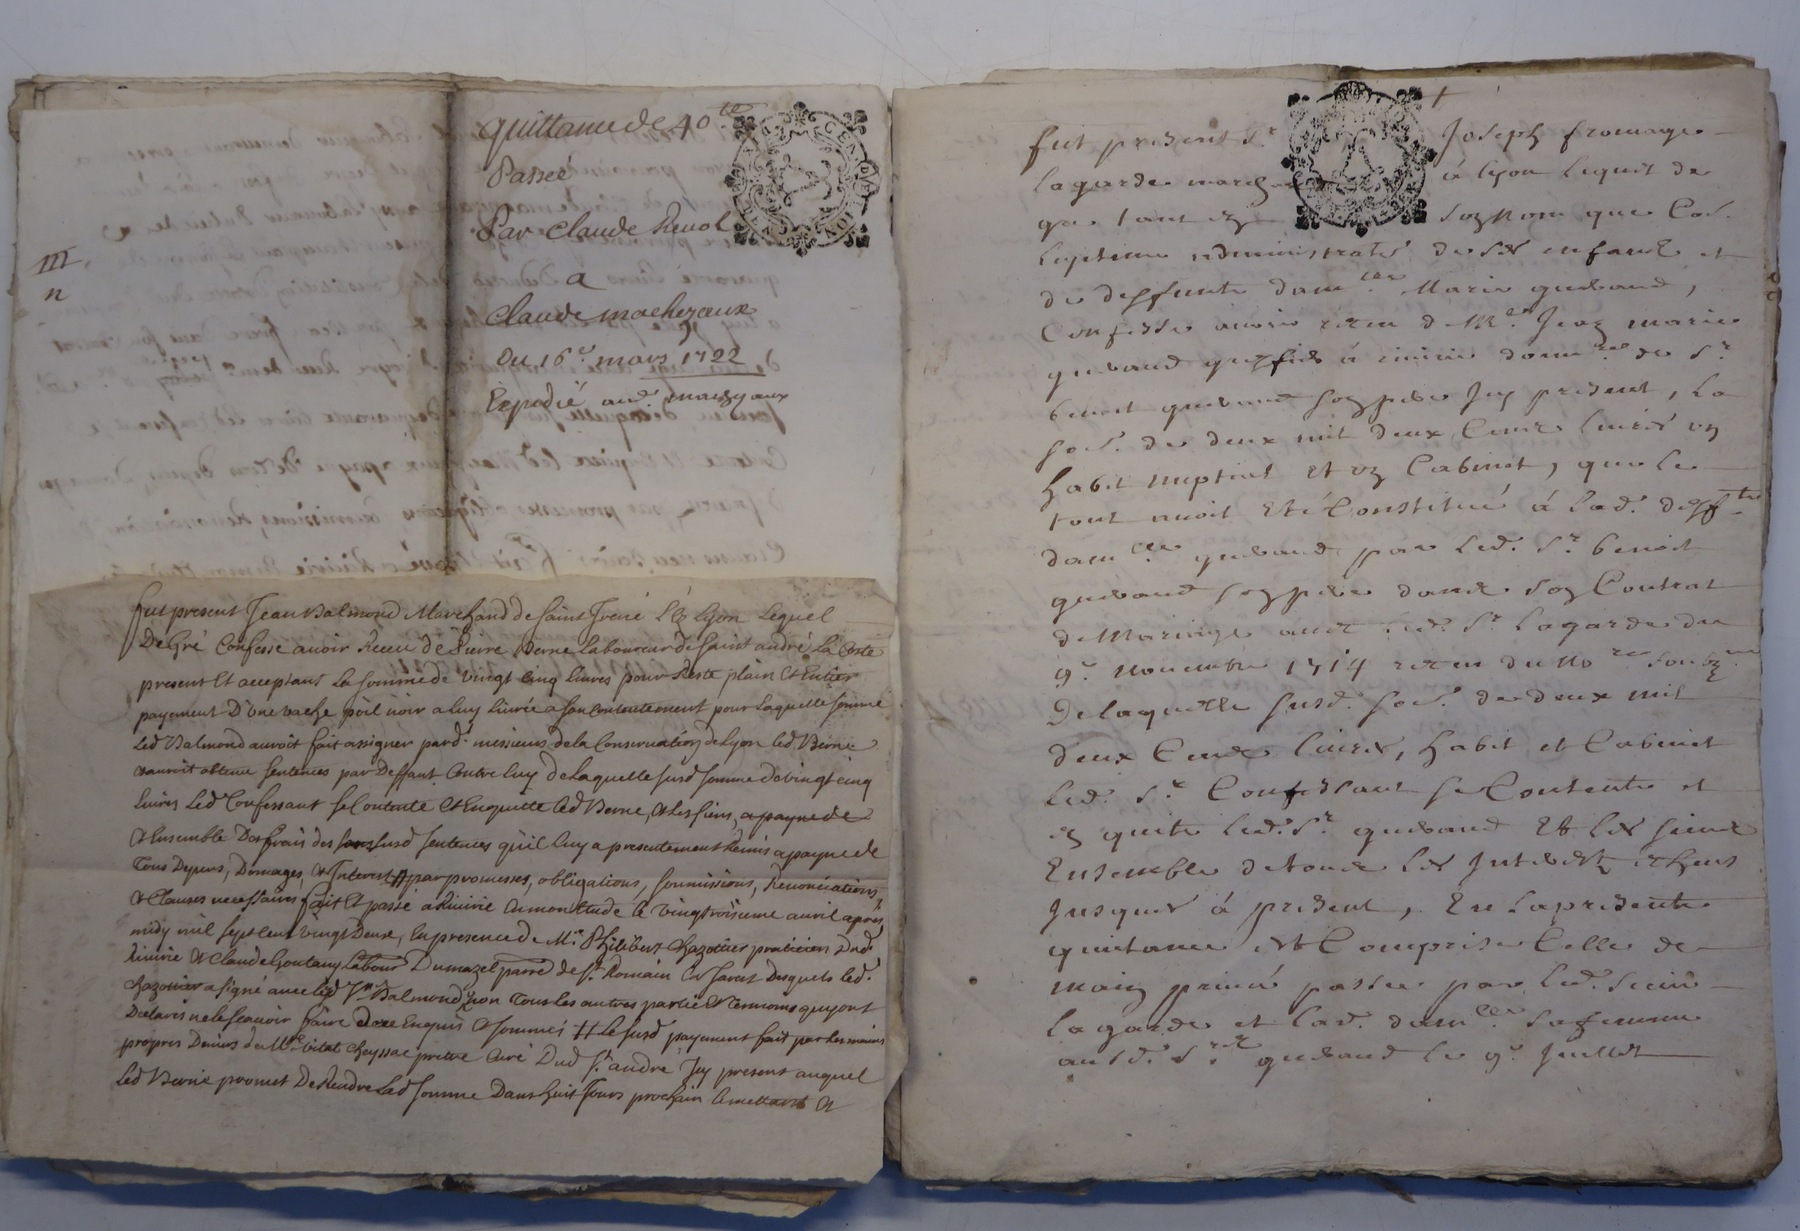 quittance de 40 ##
Passée
Par Claude Renol
a
Claude machezaux
Du 16e mars 1722
Expedié aud. mazoyaux
m
n
fut present Jean Dalmond Marchand de Saint Irené Lès Lyon Lequel
De Gré Confesse avoir Receu de Pierre Berne Laboureur de Saint andré La Coste
present Et acceptant La somme de vingt cinq Livres pour Reste plain Et Entier
payement D'une vache poil noir a luy Livrée a son contentement pour Laquelle somme
Led Dalmond auroit fait assigner pard. messieurs de la Conservation de Lyon led Berne
& auroit obtenu sentences par Deffaut Contre luy De Laquelle susd somme de vingt cinq
livres Led Confessant se Contente Et Enquitte led Berne, & Les siens, apayne de
& Ensemble Des frais des susd sentences qu'il luy a presentement Remis a payne de
Tous Depens, Domages, & Interest # par promesses, obligations, soumissions, Renonciations,
& Clauses necessaires fait Et passé a Riuirie En mon Etude le vingt troisieme auril apres
midy mil sept cent vingt Deux, En presence de Mre Philibert Chazottier praticien Dud
Riuirie & Claude Goutany Labour Dumazel parre de St Romain En Jarest Desquels led.
Chazottier a signé avec led Sr Dalmond non Tous les autres partie Et Temoins quy ont
Declarés ne le scauoir faire de ce Enquis & sommés # Le susd payement fait par Les mains
propres Deniers de Mre vital Cheyssac pretre Curé Dud St andré Jcy present auquel
Led Berne promet De Rendre Lad somme Dans huit Jours prochain &
fut present Sr Joseph fromage
Lagarde marchand à lyon lequel de
gre tant en son nom que Co.
legitime administrate de ses enfants et
de deffunte damlle Marie guerand,
Confesse avoir receu de Mre Jean marie
guerand greffier à riuirie donnre de Sr
benoit guerand son pere Jcy present, La
so. de deux mil deux Cents liures un
habit nuptial et un Cabinet, que le
tout avoit été Constitué à Lad. deffte
damlle guerand par led. Sr benoit
guerand son pere dans son Contrat
de Mariage avec led. Sr Lagarde du
9e novembre 1714 receu du nore soubzne
De laquelle susd. so. de deux mil
deux Cents liures, habit et Cabinet
led. Sr Confessant se Contente et
en quite led. Sr guerand Et les siens
Ensemble de tous les Interest echeus
Jusques à present, En la presente
quictance est Comprise Celle de
main privé passée par led. Sieur
Lagarde et lad. damlle sa femme
aud. Sr guerand le 9e Juillet